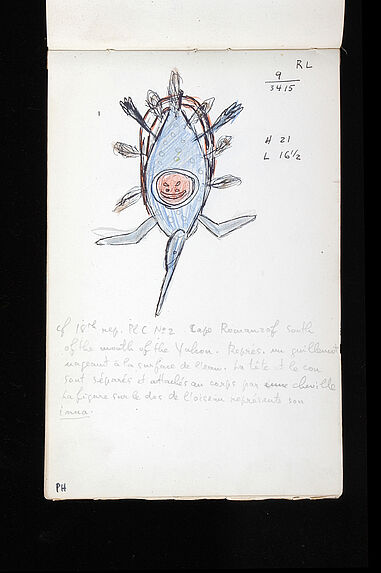 RL
9
3415
H 21
L 16½
cf 18th rep. Pl C No 2 Cape Romanzof South
of the mouth of the Yukon. Représ. un guillemot
nageant à la surface de l'eau. La tête et le cou
sont séparés et attachés au corps par une cheville
La figure sur le dos de l'oiseau représente son
inua.
PH